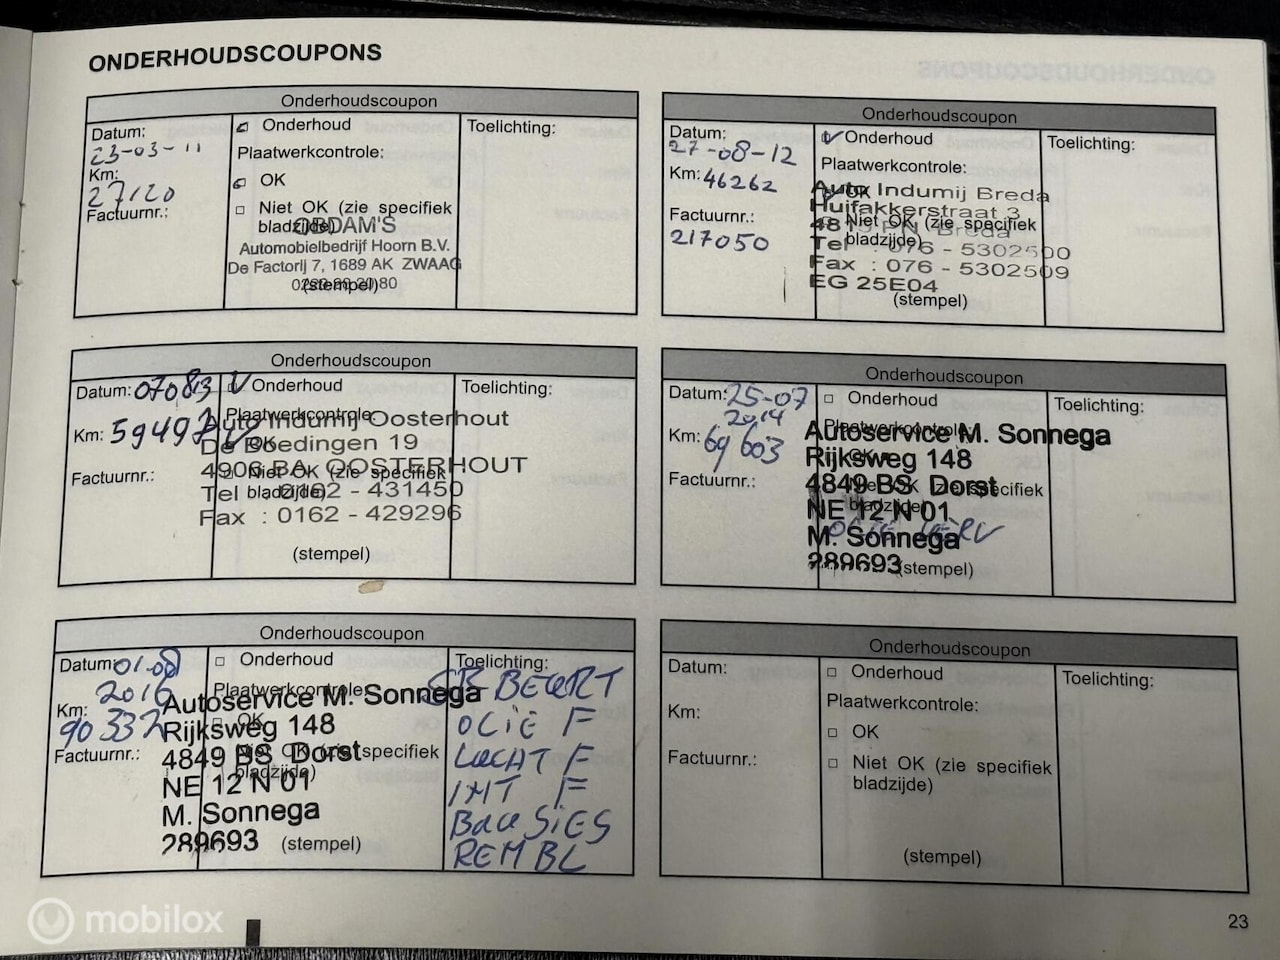 ONDERHOUDSCOUPONS
Onderhoudscoupon
Datum:
23-03-11
Km:
27120
Factuurnr.:
Onderhoud
Plaatwerkcontrole:
OK
Niet OK (zie specifiek
bladzijde)
OBDAM'S
Automobielbedrijf Hoorn B.V.
De Factorij 7, 1689 AK ZWAAG
(stempel)
Toelichting:
Onderhoudscoupon
Datum:
27-08-12
Km: 46262
Factuurnr.:
217050
Onderhoud
Plaatwerkcontrole:
OK
Niet OK (zie specifiek
bladzijde)
Auto Indumij Breda
Huifakkerstraat 3
4815 PN Breda
Tel : 076 - 5302500
Fax : 076 - 5302509
EG 25E04
(stempel)
Toelichting:
Onderhoudscoupon
Datum: 070813
Km: 59497
Factuurnr.:
Onderhoud
Plaatwerkcontrole:
OK
Niet OK (zie specifiek
bladzijde)
Auto Indumij Oosterhout
De Boedingen 19
4906 BA OOSTERHOUT
Tel : 0162 - 431450
Fax : 0162 - 429296
(stempel)
Toelichting:
Onderhoudscoupon
Datum: 25-07
2014
Km: 69603
Factuurnr.:
Onderhoud
Plaatwerkcontrole:
OK
Niet OK (zie specifiek
bladzijde)
Autoservice M. Sonnega
Rijksweg 148
4849 BS Dorst
NE 12 N 01
M. Sonnega
289693
(stempel)
Toelichting:
Onderhoudscoupon
Datum: 01-08
2016
Km:
90332
Factuurnr.:
Onderhoud
Plaatwerkcontrole:
OK
Niet OK (zie specifiek
bladzijde)
Autoservice M. Sonnega
Rijksweg 148
4849 BS Dorst
NE 12 N 01
M. Sonnega
289693
(stempel)
Toelichting:
BEURT
OLIE F
LUCHT F
INT F
BOUGIES
REM BL
Onderhoudscoupon
Datum:
Km:
Factuurnr.:
Onderhoud
Plaatwerkcontrole:
OK
Niet OK (zie specifiek
bladzijde)
(stempel)
Toelichting:
23
mobilox